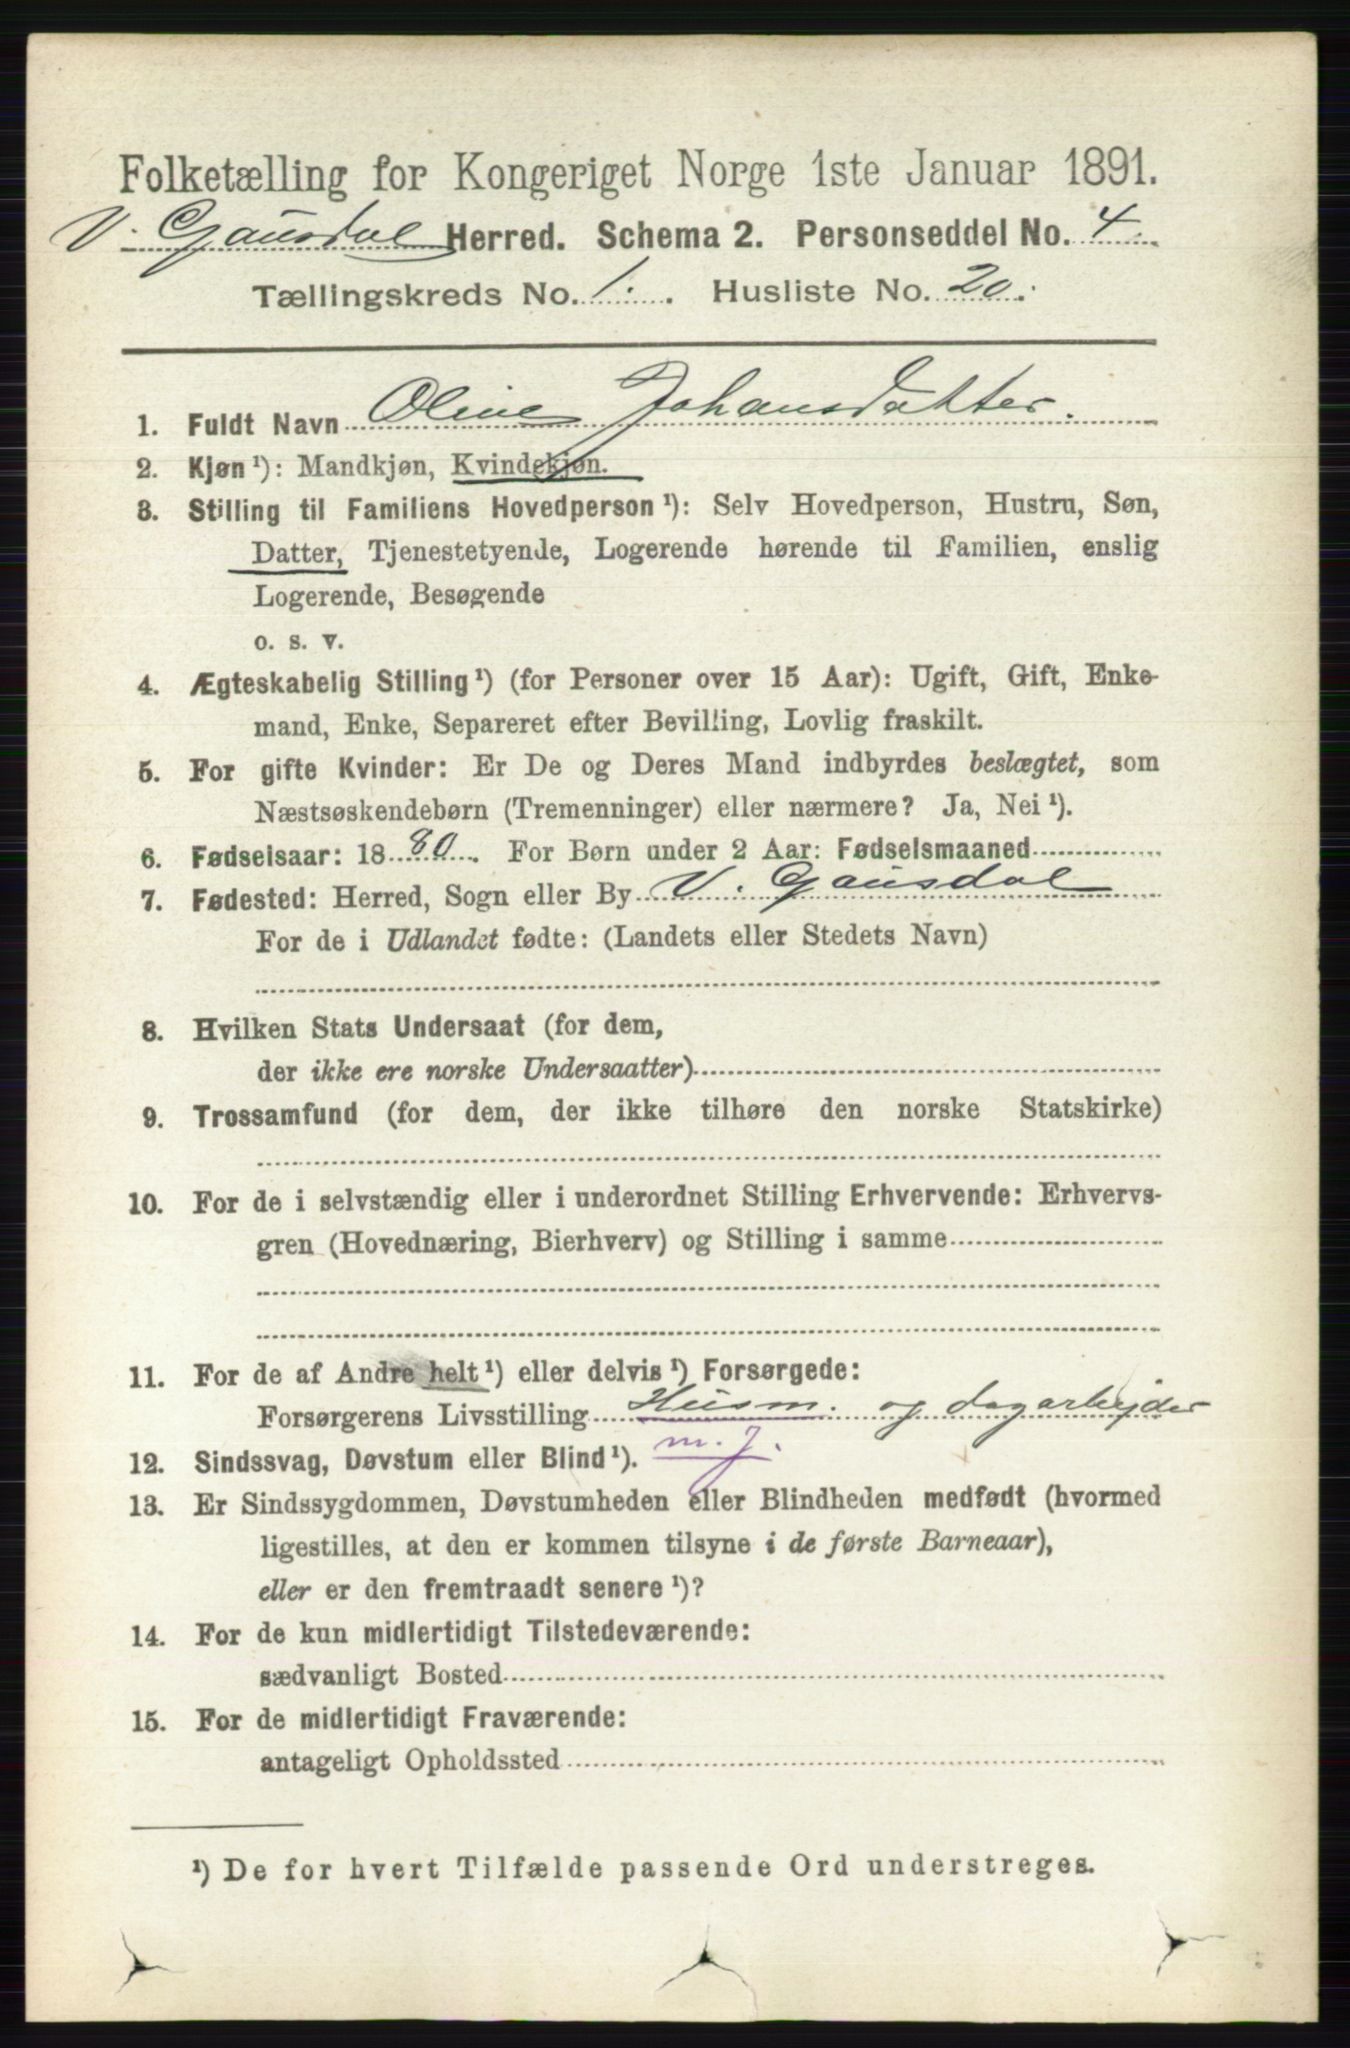 Folketælling for Kongeriget Norge 1ste Januar 1891.
V. Gausdal Herred. Schema 2. Personseddel No. 4.
Tællingskreds No. 1. Husliste No. 20.
1. Fuldt Navn Oline Johansdatter.
2. Kjøn¹): Mandkjøn, Kvindekjøn.
3. Stilling til Familiens Hovedperson¹): Selv Hovedperson, Hustru, Søn,
Datter, Tjenestetyende, Logerende hørende til Familien, enslig
Logerende, Besøgende
o. s. v.
4. Ægteskabelig Stilling¹) (for Personer over 15 Aar): Ugift, Gift, Enke-
mand, Enke, Separeret efter Bevilling, Lovlig fraskilt.
5. For gifte Kvinder: Er De og Deres Mand indbyrdes beslægtet, som
Næstsøskendebørn (Tremenninger) eller nærmere? Ja, Nei¹).
6. Fødselsaar: 1880. For Børn under 2 Aar: Fødselsmaaned
7. Fødested: Herred, Sogn eller By V. Gausdal
For de i Udlandet fødte: (Landets eller Stedets Navn)
8. Hvilken Stats Undersaat (for dem,
der ikke ere norske Undersaatter)
9. Trossamfund (for dem, der ikke tilhøre den norske Statskirke)
10. For de i selvstændig eller i underordnet Stilling Erhvervende: Erhvervs-
gren (Hovednæring, Bierhverv) og Stilling i samme
11. For de af Andre helt¹) eller delvis¹) Forsørgede:
Forsørgerens Livsstilling Husm. og dagarbejder
m. j.
12. Sindssvag, Døvstum eller Blind¹).
13. Er Sindssygdommen, Døvstumheden eller Blindheden medfødt (hvormed
ligestilles, at den er kommen tilsyne i de første Barneaar),
eller er den fremtraadt senere¹)?
14. For de kun midlertidigt Tilstedeværende:
sædvanligt Bosted
15. For de midlertidigt Fraværende:
antageligt Opholdssted
¹) De for hvert Tilfælde passende Ord understreges.